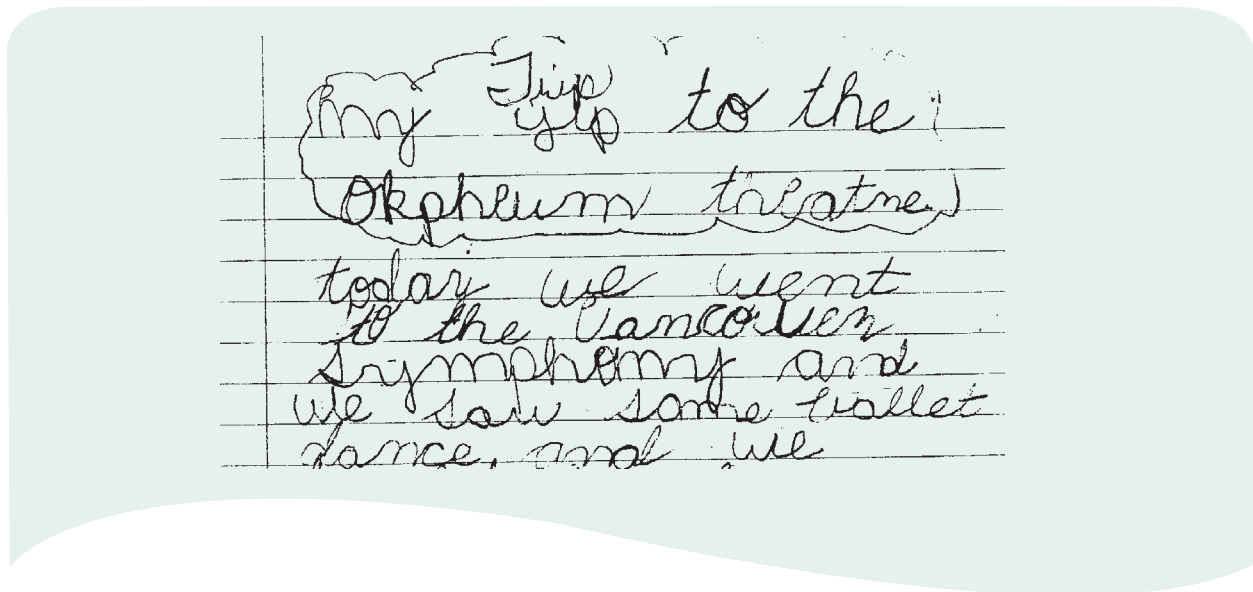 Trip
My yip to the
Okpheum theatne
today we went
to the Vancouver
Symphony and
we saw some ballet
dance, and we